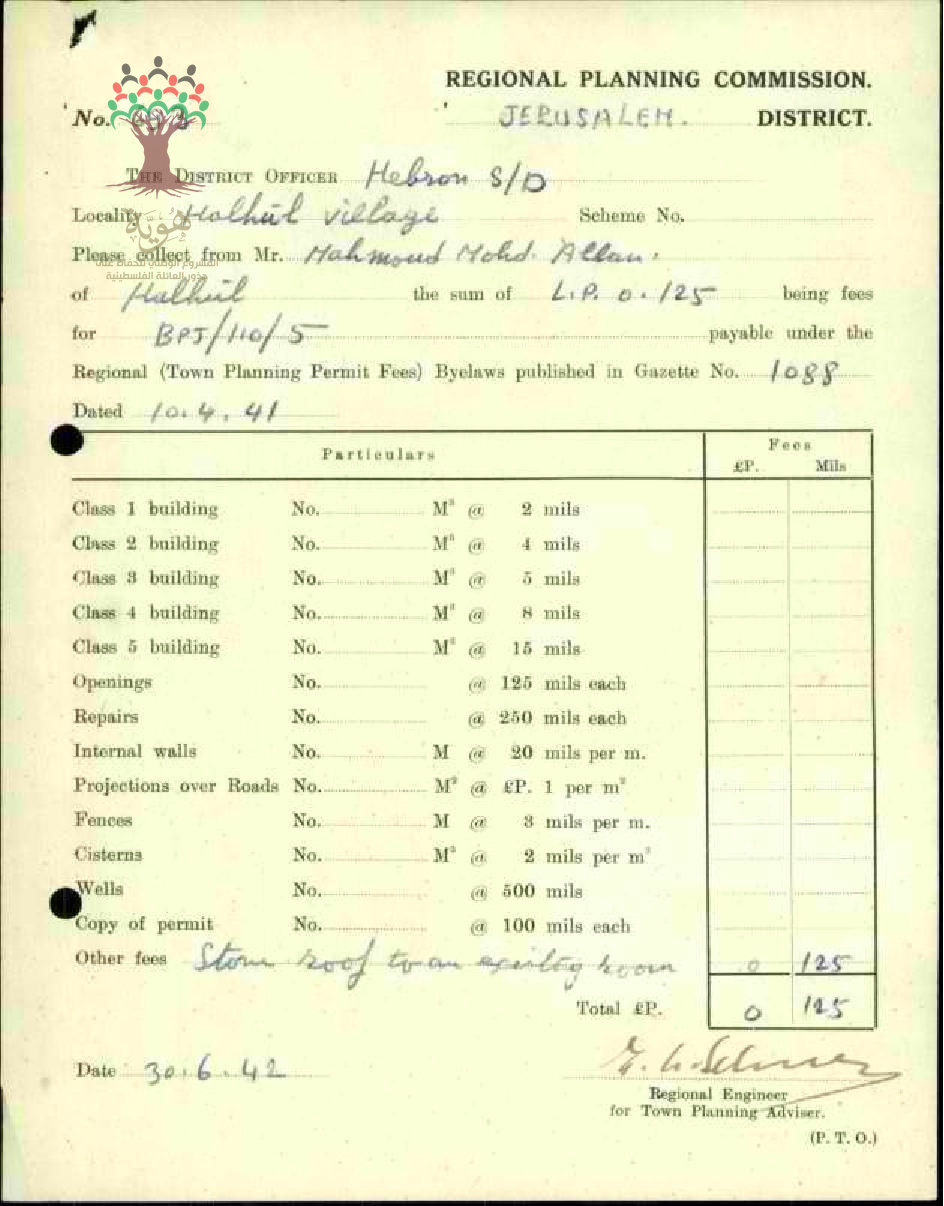 REGIONAL PLANNING COMMISSION.
No. JERUSALEM. DISTRICT.
THE DISTRICT OFFICER Hebron S/D
Locality Halhûl village Scheme No.
Please collect from Mr. Mahmoud Mohd. Allan.
of Halhûl the sum of L.P. 0.125 being fees
for BPJ/110/5 payable under the
Regional (Town Planning Permit Fees) Byelaws published in Gazette No. 1088
Dated 10.4.41
هوية
المشروع الوطني للحفاظ على
جذور العائلة الفلسطينية
Particulars Fees
£P. Mils
Class 1 building No. M³ @ 2 mils
Class 2 building No. M³ @ 4 mils
Class 3 building No. M³ @ 5 mils
Class 4 building No. M³ @ 8 mils
Class 5 building No. M³ @ 15 mils
Openings No. @ 125 mils each
Repairs No. @ 250 mils each
Internal walls No. M @ 20 mils per m.
Projections over Roads No. M² @ £P. 1 per m²
Fences No. M @ 3 mils per m.
Cisterns No. M³ @ 2 mils per m³
Wells No. @ 500 mils
Copy of permit No. @ 100 mils each
Other fees Stone roof to an existing room 0 125
Total £P. 0 125
Date 30.6.42
Regional Engineer
for Town Planning Adviser.
(P. T. O.)